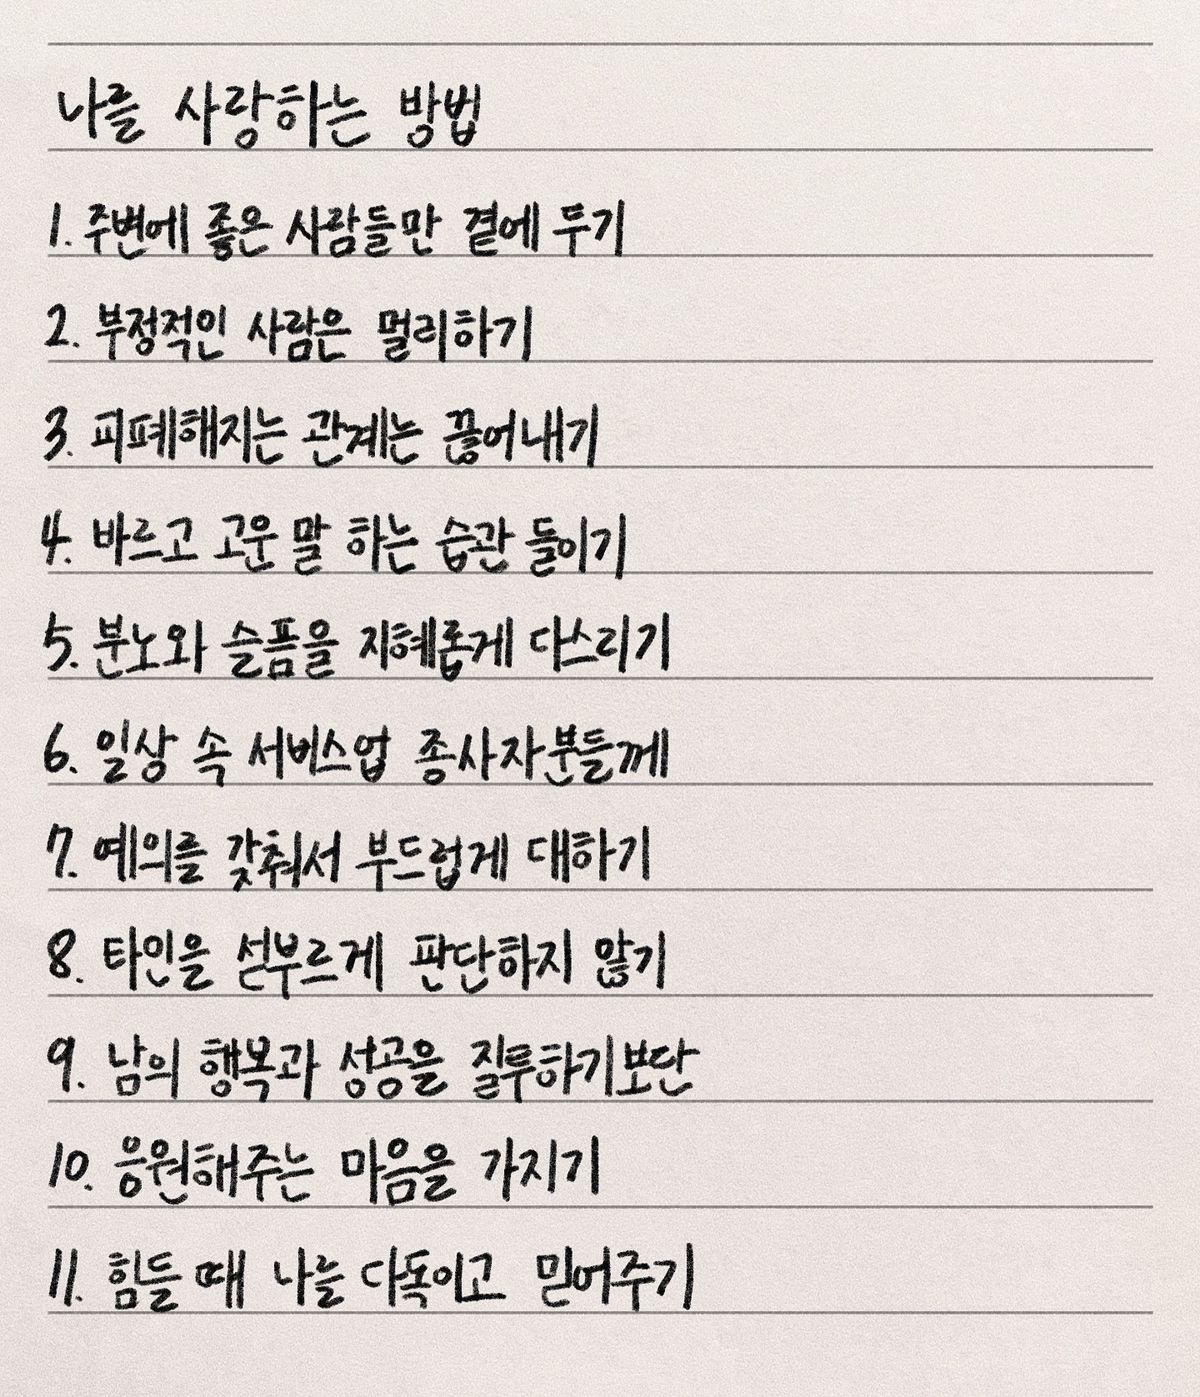 나를 사랑하는 방법
1. 주변에 좋은 사람들만 곁에 두기
2. 부정적인 사람은 멀리하기
3. 피폐해지는 관계는 끊어내기
4. 바르고 고운 말 하는 습관 들이기
5. 분노와 슬픔을 지혜롭게 다스리기
6. 일상 속 서비스업 종사자분들께
7. 예의를 갖춰서 부드럽게 대하기
8. 타인을 섣부르게 판단하지 않기
9. 남의 행복과 성공을 질투하기보단
10. 응원해주는 마음을 가지기
11. 힘들 때 나를 다독이고 믿어주기